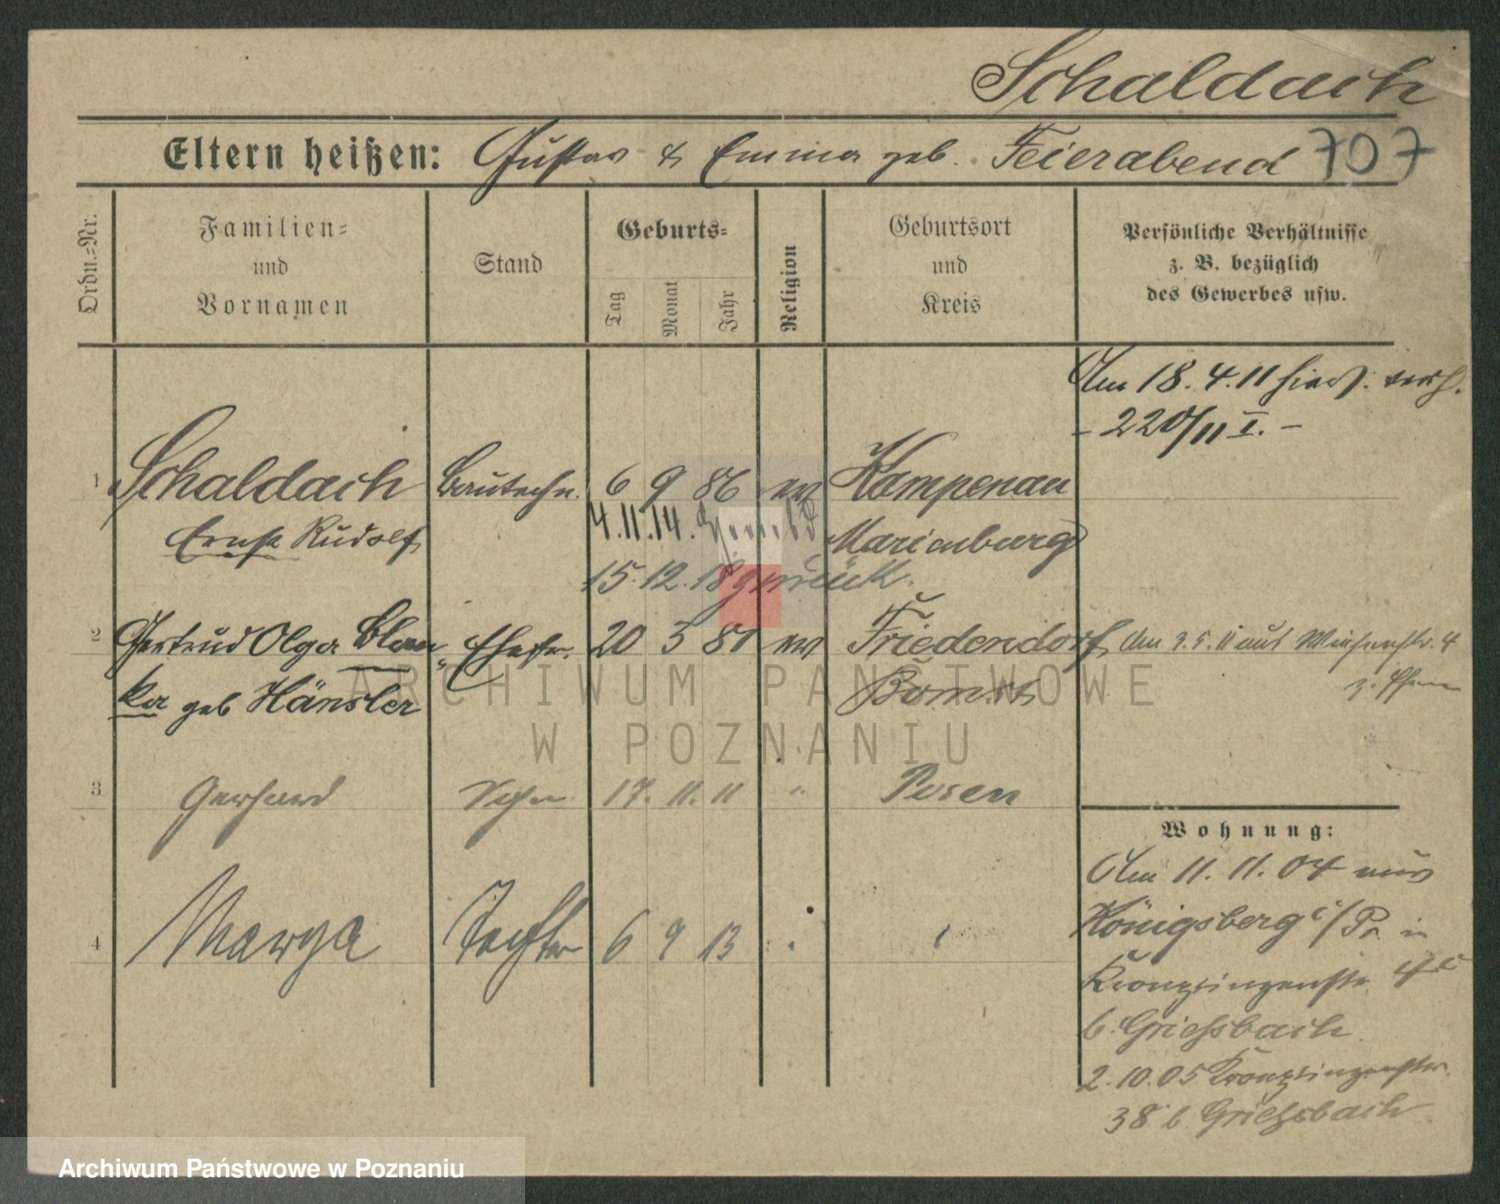 Schaldach
Eltern heißen: Gustav & Emma geb. Feierabend 707
Ordn.=Nr.
Familien=
und
Vornamen
Stand
Geburts=
Tag
Monat
Jahr
Religion
Geburtsort
und
Kreis
Persönliche Verhältnisse
z. B. bezüglich
des Gewerbes usw.
Am 18.4.11 hies. verh.
- 220/11 I. -
1 Schaldach Bautechn. 6 9 86 ev Kampenau
Ernst Rudolf Marienburg
4.11.14.
15.12.18 zurück.
2 Gertrud Olga Blan- Ehefr. 20 3 81 ev Friedendorf
ka geb Hänsler Bomst
Am 3.5.11 aus
3 Gerhard Sohn 17. 11. 11 " Posen
4 Marga Tochter 6 9 13 "
Wohnung:
Am 11.11.04 aus
Königsberg i/Pr. in
Kronprinzenstr.
b. Griehsbach.
2.10.05 Kronprinzenstr.
38 b. Griehsbach
ARCHIWUM PAŃSTWOWE
W POZNANIU
Archiwum Państwowe w Poznaniu